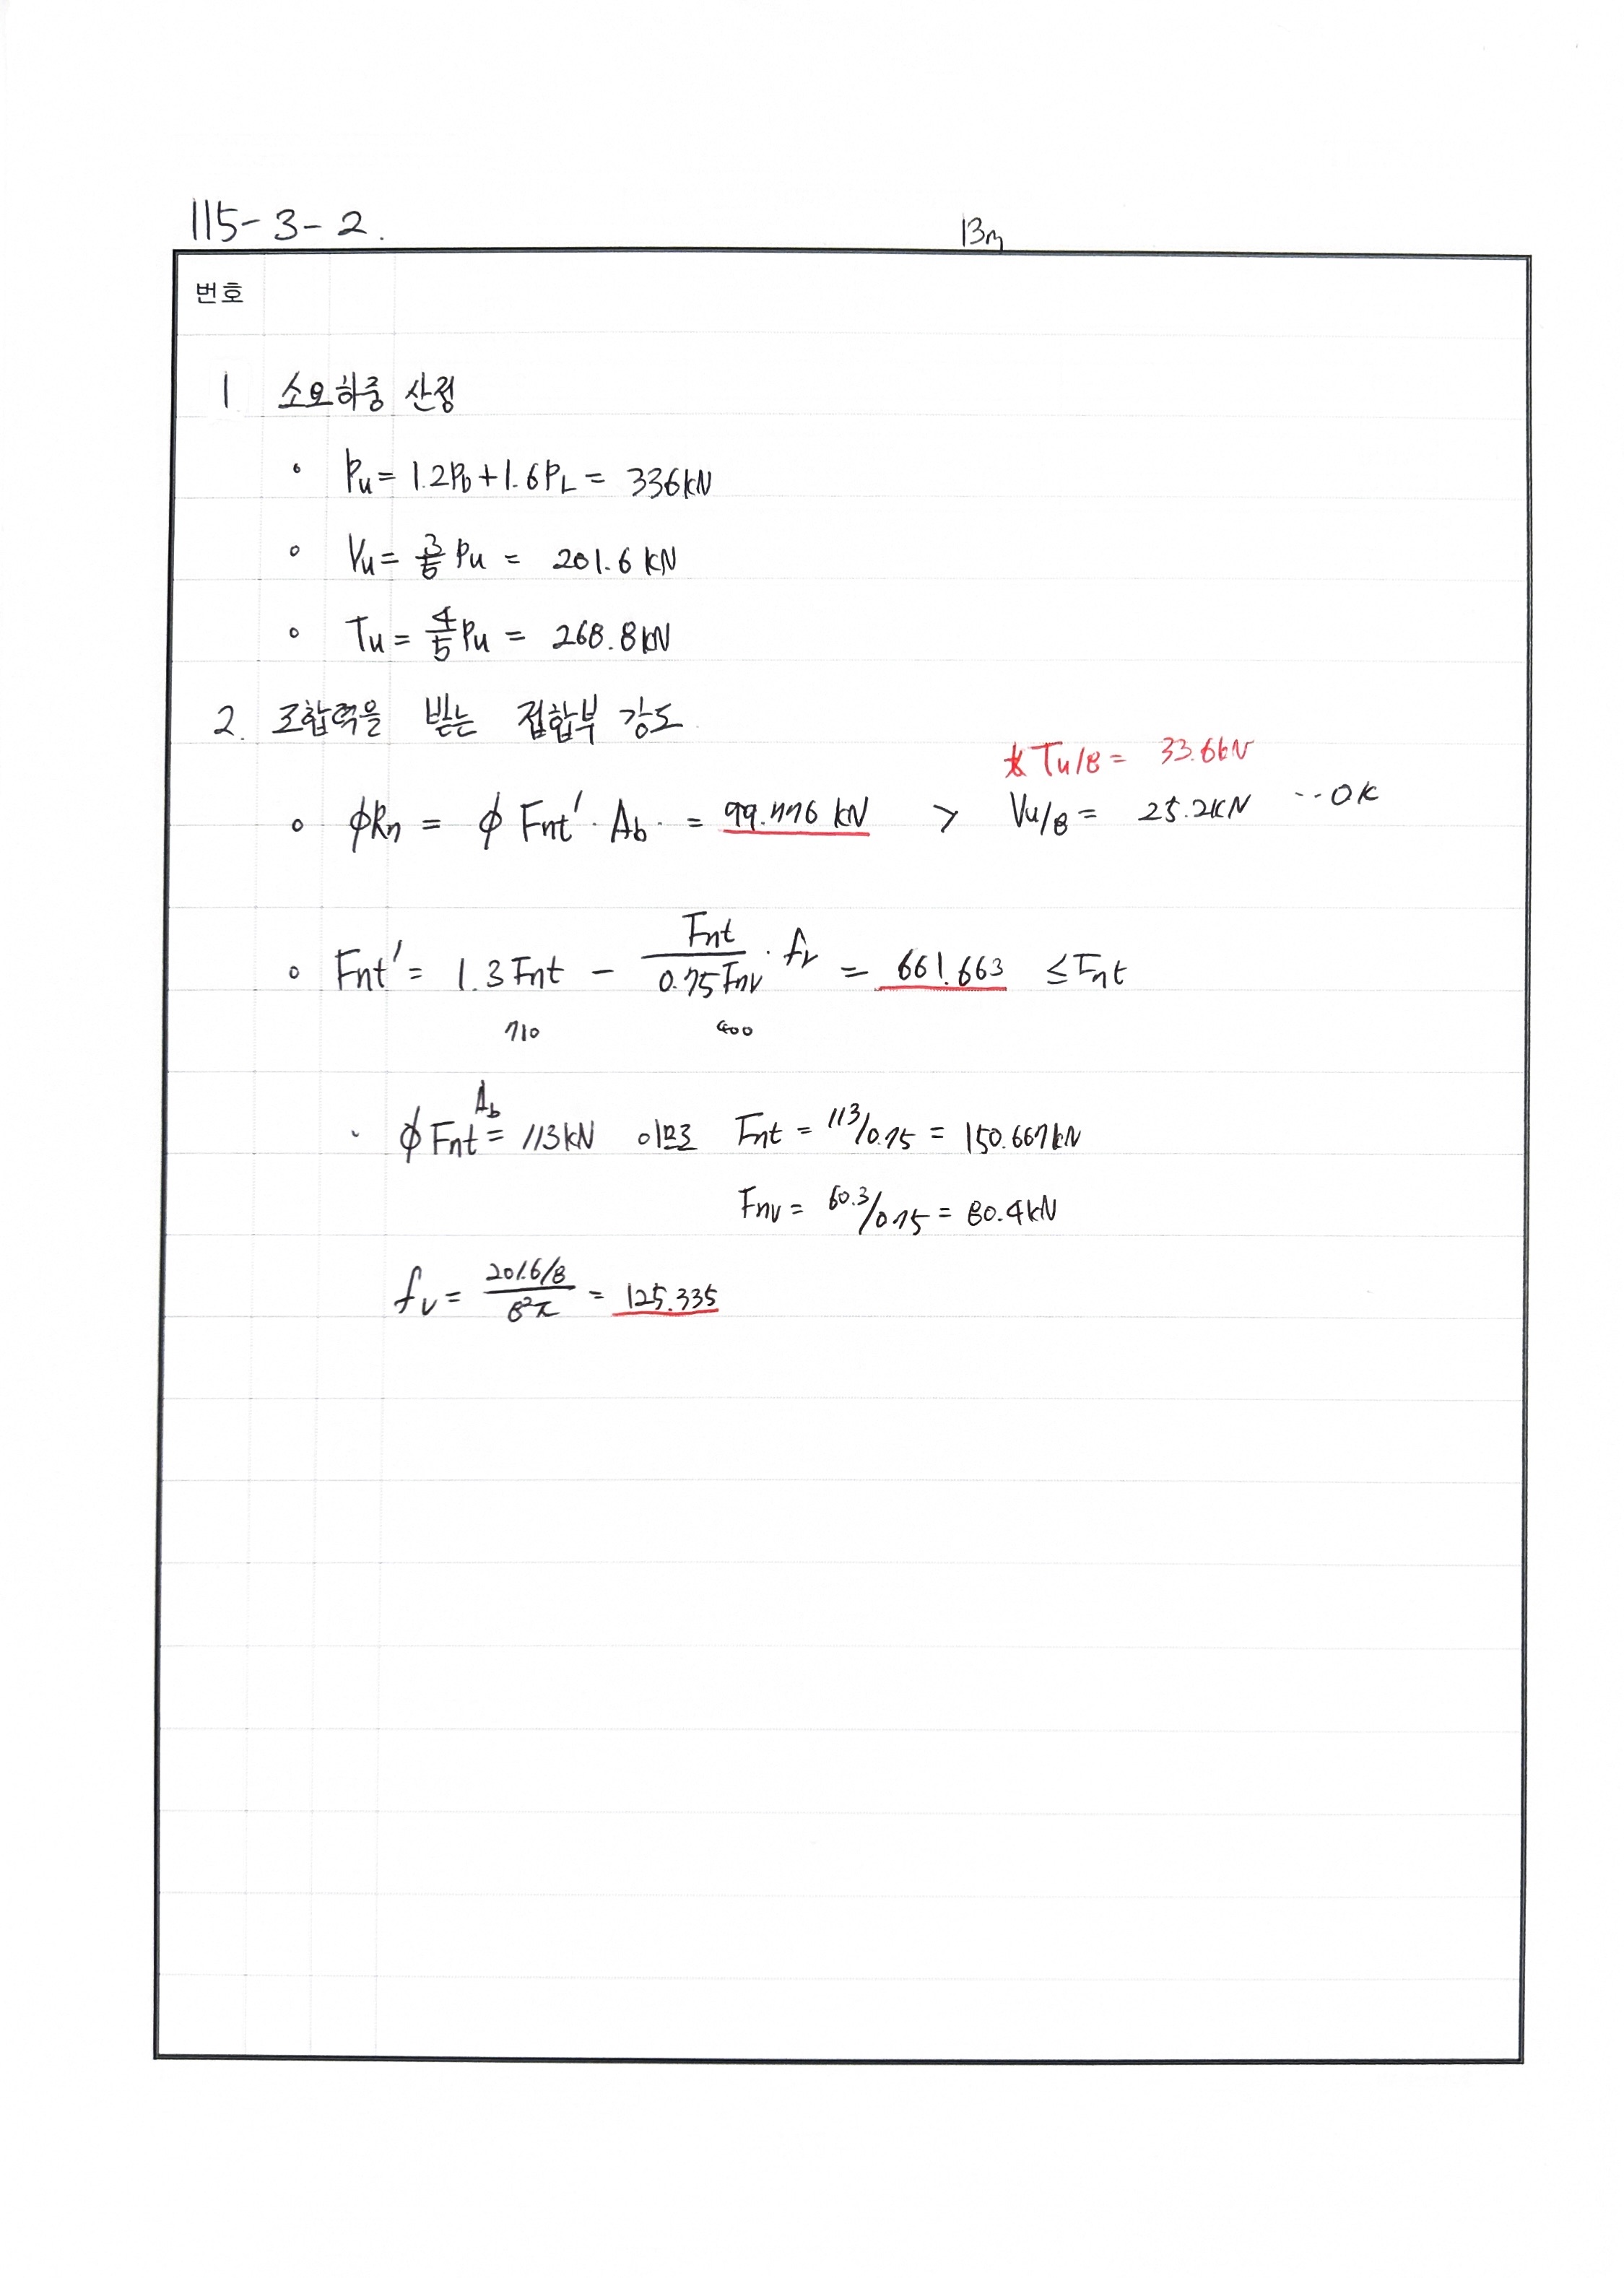 115-3-2.
13m
번호
1 소요하중 산정
∘ Pu = 1.2PD + 1.6PL = 336kN
∘ Vu = 3/5 Pu = 201.6 kN
∘ Tu = 4/5 Pu = 268.8kN
2. 조합력을 받는 접합부 강도
★ Tu/8 = 33.6kN
∘ ϕRn = ϕ Fnt'· Ab· = 99.776 kN > Vu/8 = 25.2kN ··OK
∘ Fnt' = 1.3 Fnt - Fnt/0.75Fnv · fv = 661.663 ≤ Fnt
710 400
· ϕ Fnt Ab = 113kN 이므로 Fnt = 113/0.75 = 150.667kN
Fnv = 60.3/0.75 = 80.4kN
fv = 201.6/8 / 8²π = 125.335